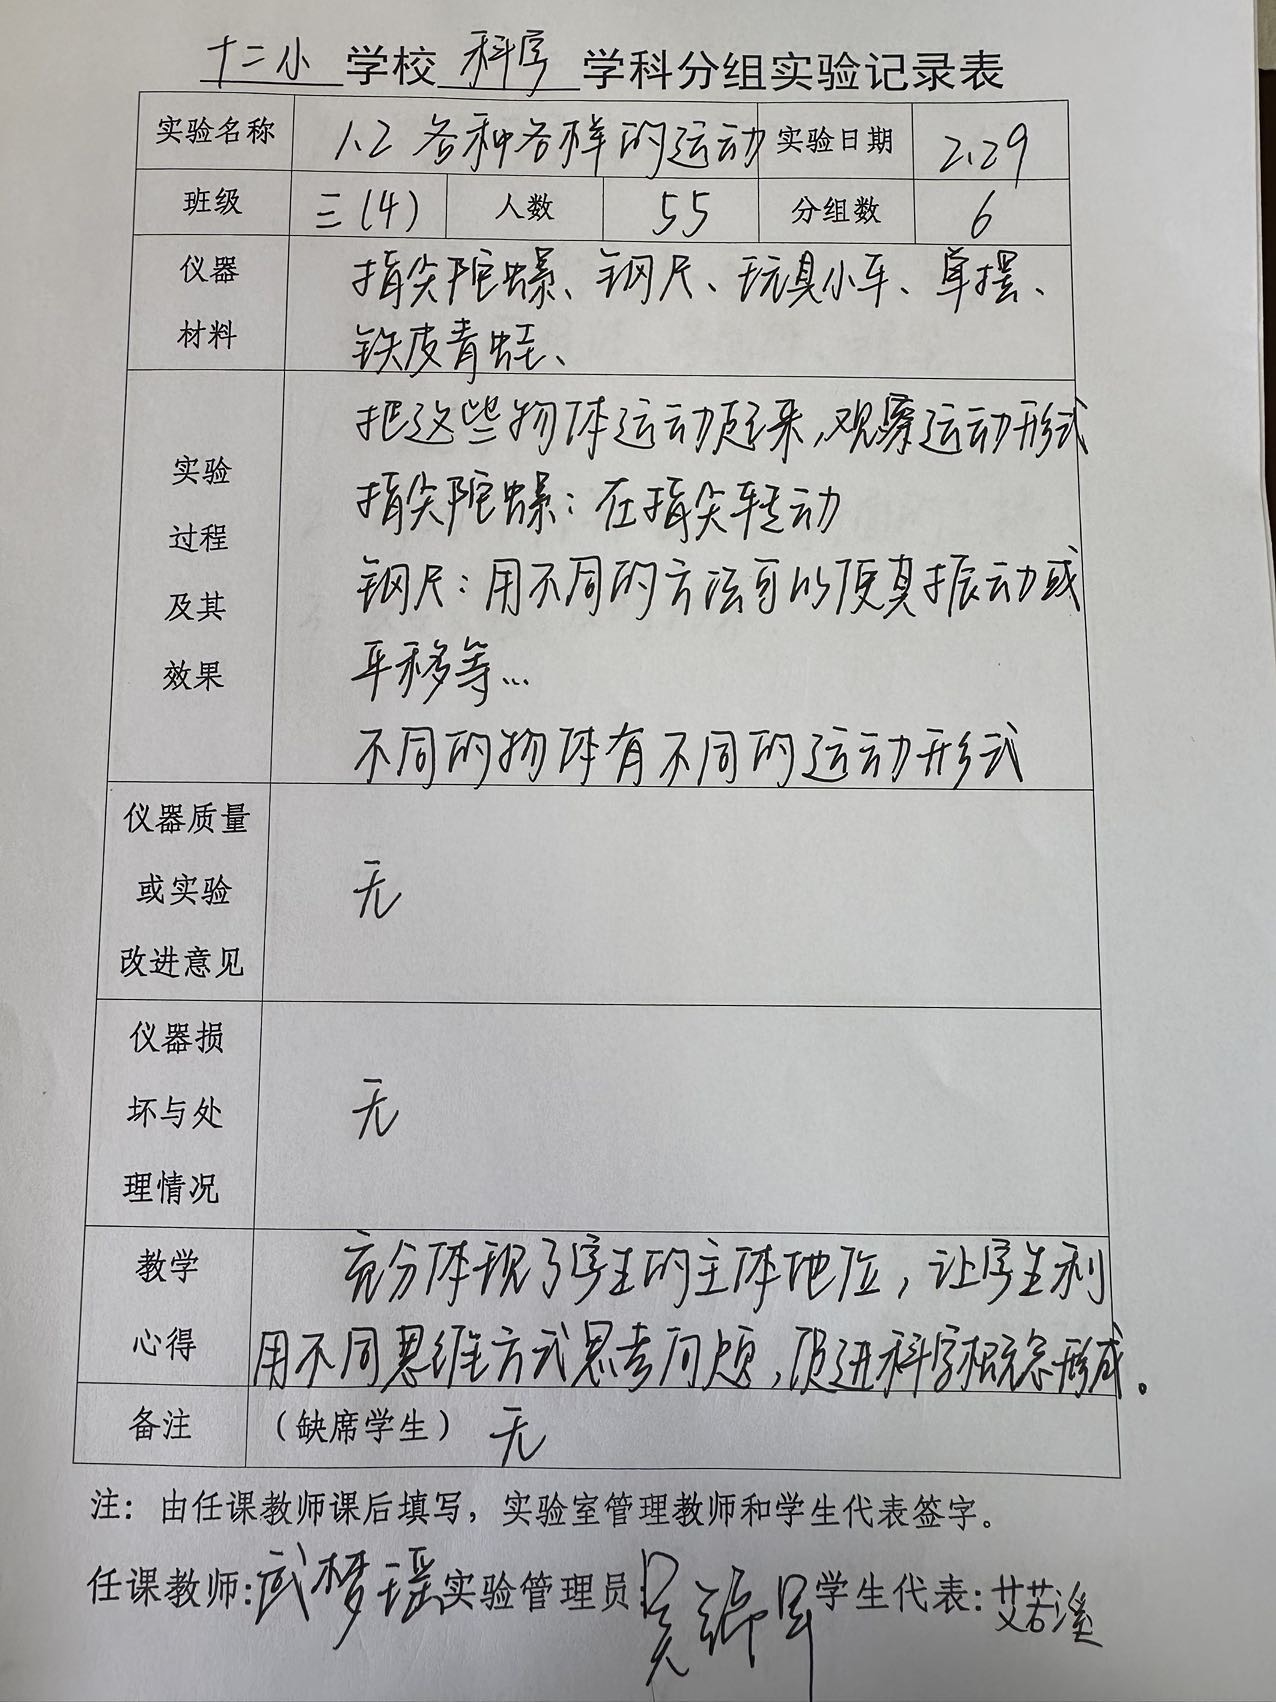 十二小 学校 科学 学科分组实验记录表
实验名称 1.2 各种各样的运动 实验日期 2.29
班级 三(4) 人数 55 分组数 6
仪器材料 指尖陀螺、钢尺、玩具小车、单摆、
铁皮青蛙、
实验过程及其效果 把这些物体运动起来,观察运动形式
指尖陀螺:在指尖转动
钢尺:用不同的方法可以使其振动或
平移等...
不同的物体有不同的运动形式
仪器质量或实验改进意见 无
仪器损坏与处理情况 无
教学心得 充分体现了学生的主体地位,让学生利
用不同思维方式思考问题,促进科学概念形成。
备注 (缺席学生) 无
注:由任课教师课后填写,实验室管理教师和学生代表签字。
任课教师:武梦瑶 实验管理员: 学生代表:艾若溪